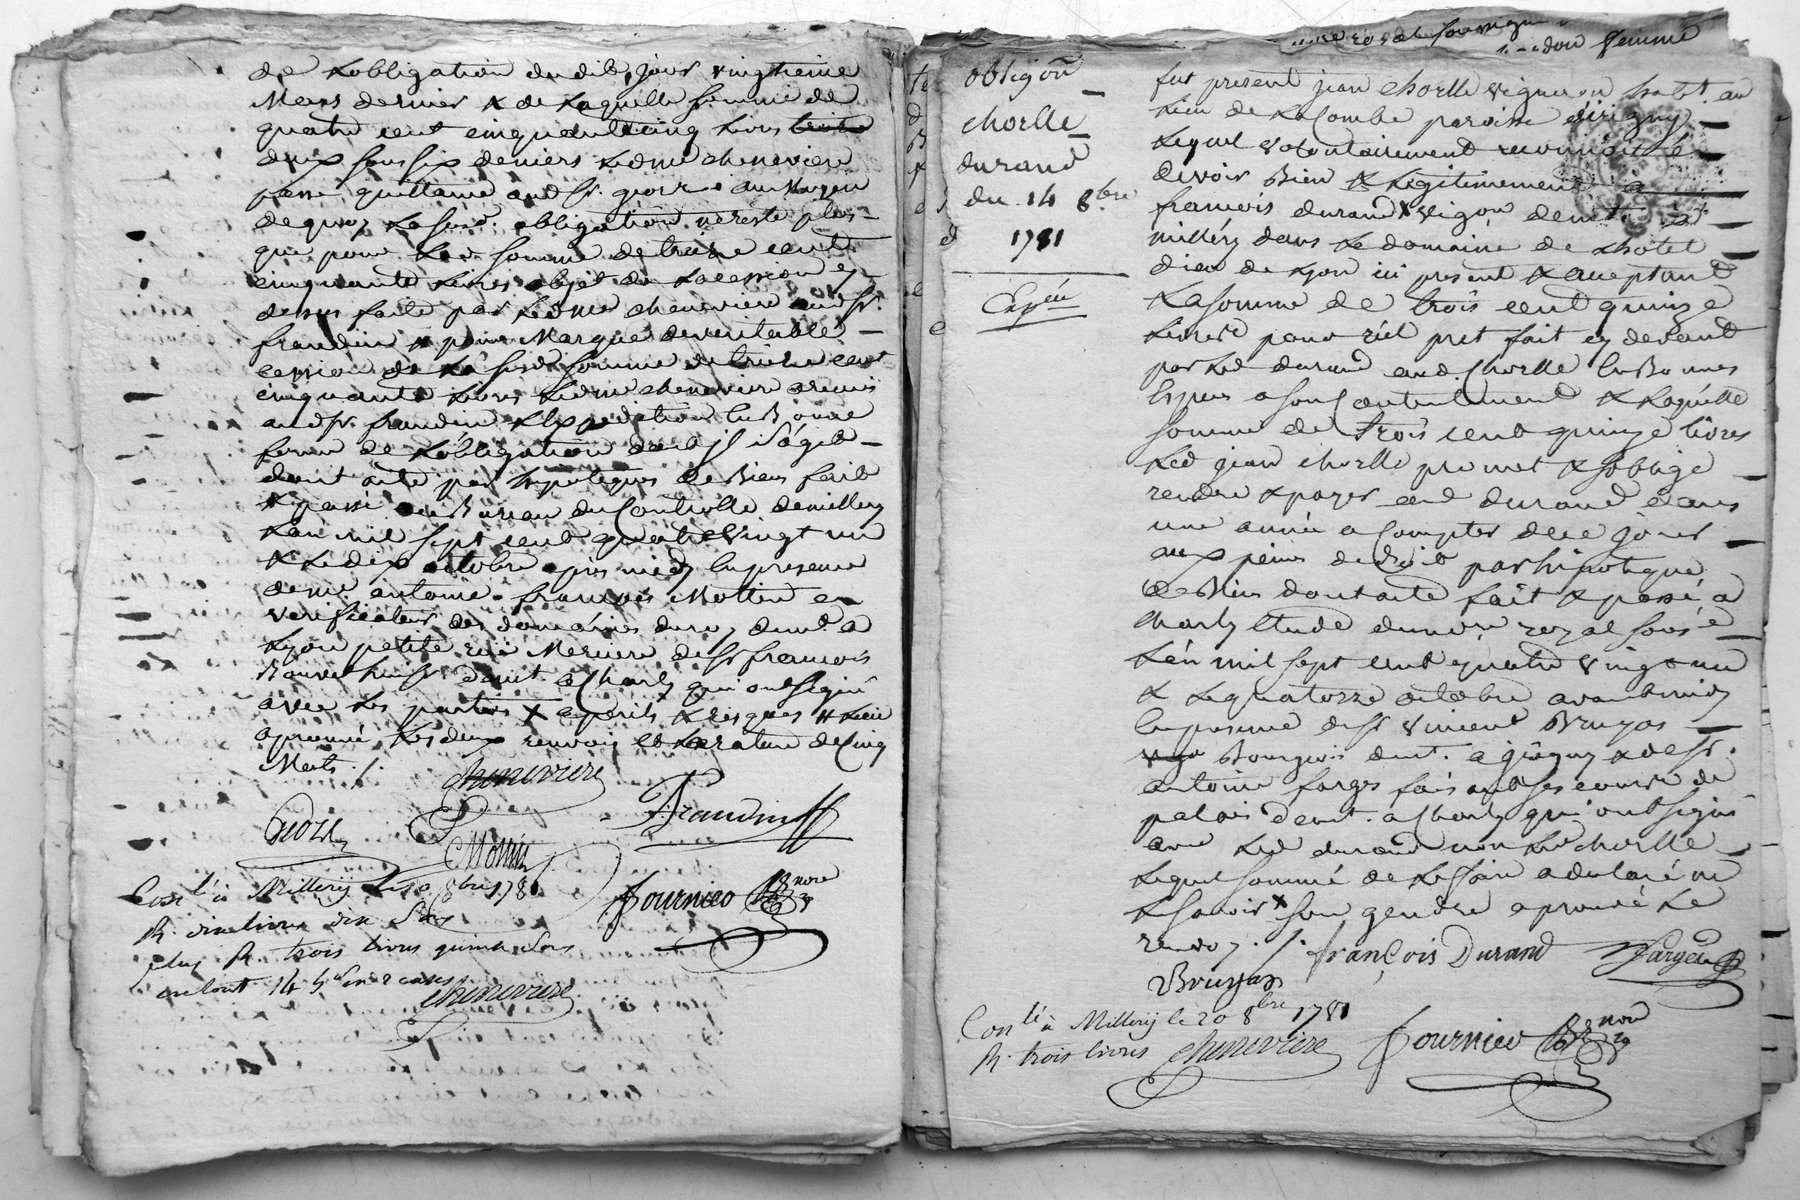 de Lobligation du dit jour vingtieme
Mars dernier & de Laquelle somme de
quatre cent cinquante cinq livres trois
deux sous six deniers Led me cheneviere
passe quittance aud sr. geoz au moyen
de quoy La susd. obligation ne reste plus
que pour Lad. somme de treize cent
cinquante Livres objet de La cession cy
dessus faite par Led me cheneviere aud sr.
fraudin # pour Marque de veritable
cession de La susd somme de treize cent
cinquante Livres Led me cheneviere a remis
aud sr. fraudin L'expedition en Bonne
forme de L'obligation dont il s'agit
dont acte par hypoteques de Biens fait
& passé au Bureau du Controlle de millery
L'an mil sept cent quatre vingt un
& Le dix octobre apres midy En presence
de me antoine françois Mottin
verificateur des domaines du roy demt. a
Lyon petite rüe Merciere & de sr francois
huissr. demt. a Charly qui ont signé
avec Les parties X a perils & risques # Lieu
aprouvé Les deux renvois et La rature de Cinq
Mots ./.
cheneviere
Geoze
Fraudin
Mottin
Conlé à Millery Le 10 8bre 1781
R. dix livres dix sols
plus R. trois livres quinze sols
en tout 14lt 5s en 2 causes
cheneviere
Fournieo nore
obligõn
chorlle
durand
du 14 8bre
1781
Expée
royal soussigné
femme
fut present jean chorlle vigneron habt. au
Lieu de La Combe paroisse d'irigny
Lequel volontairement reconnoit
devoir Bien & Legitimement à
francois durand X vigon demt. à
milléry dans Le domaine de L'hotel
dieu de Lyon ici present & acceptant
La somme de trois cent quinze
Livres pour réel pret fait cy devant
par Led durand aud. Chorlle En Bonnes
Especes a son Contentement & Laquelle
somme de trois cent quinze livres
Led jean chorlle promet & s'oblige
rendre & payer aud durand dans
une année a Compter de ce jour
aux peines de droit par hipotéque
de Biens dont acte fait & passé à
Charly Etude du nore royal soussé
L'an mil sept cent quatre vingt un
& Le quatorze octobre avant midy
En presence de sr vincent Bruyas
Bourgeois demt. a grigny & de sr.
antoine farges faisant ses cours de
palais demt. a Charly qui ont signé
avec Led durand non Led chorlle
Lequel sommé de Le faire a declaré ne
Le savoir X son gendre aprouvé Le
renvoy ./. françois Durand Farges
Bruyas
Conlé à Millery le 20 8bre 1781
R. trois livres cheneviere Fournieo nore